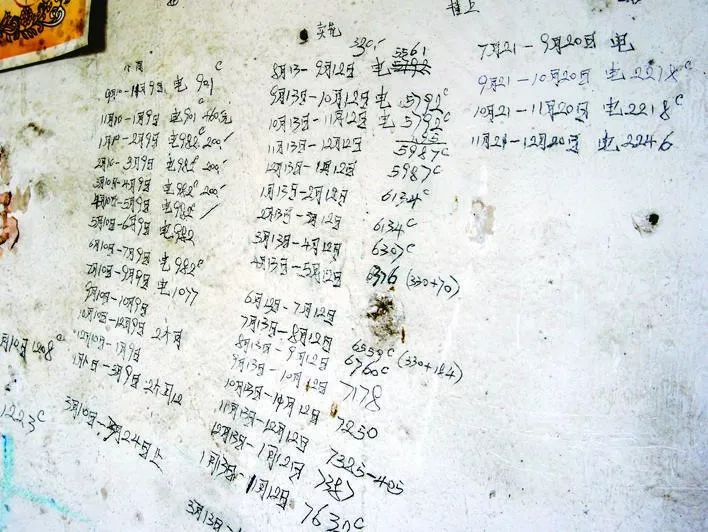 9月10-11月9日 电 901
11月10-1月9日 电901 460元
1月10-2月9日 电982c 200
2月10-3月9日 电982c 200
3月10日-4月9日 电982c 200
4月10日-5月9日 电982c
5月10日-6月9日 电982
6月10日-7月9日 电982c
7月10日-9月9日 电1077
9月10日-10月9日
10月10日-12月9日 2个月
12月10日-1月9日
3月10日-
月24日止
月10日 1208c
1223c
330
3561
8月13-9月12日 电
9月13日-10月12日 电 5792c
10月13日-11月12日 电 5792c
195
11月13日-12月12日 5987c
12月13日-1月12日 5987c
1月13日-2月12日 6134c
2月13日-3月12日 6134c
3月13日-4月12日 6307c
4月13日-5月12日 6376 (330+70)
6月12日-7月12日
7月13日-8月12日 6559c (330+184)
8月13日-9月12日 6760c
9月13日-10月12日 7178
10月13日-11月12日 7250
11月13日-12月12日 7325-405
12月13日-1月12日 7387
1月13日-1月12日 7630c
3月13日-
7月21-9月20日 电
9月21-10月20日 电 2218c
10月21-11月20日 电 2218c
11月21-12月20日 电 2246